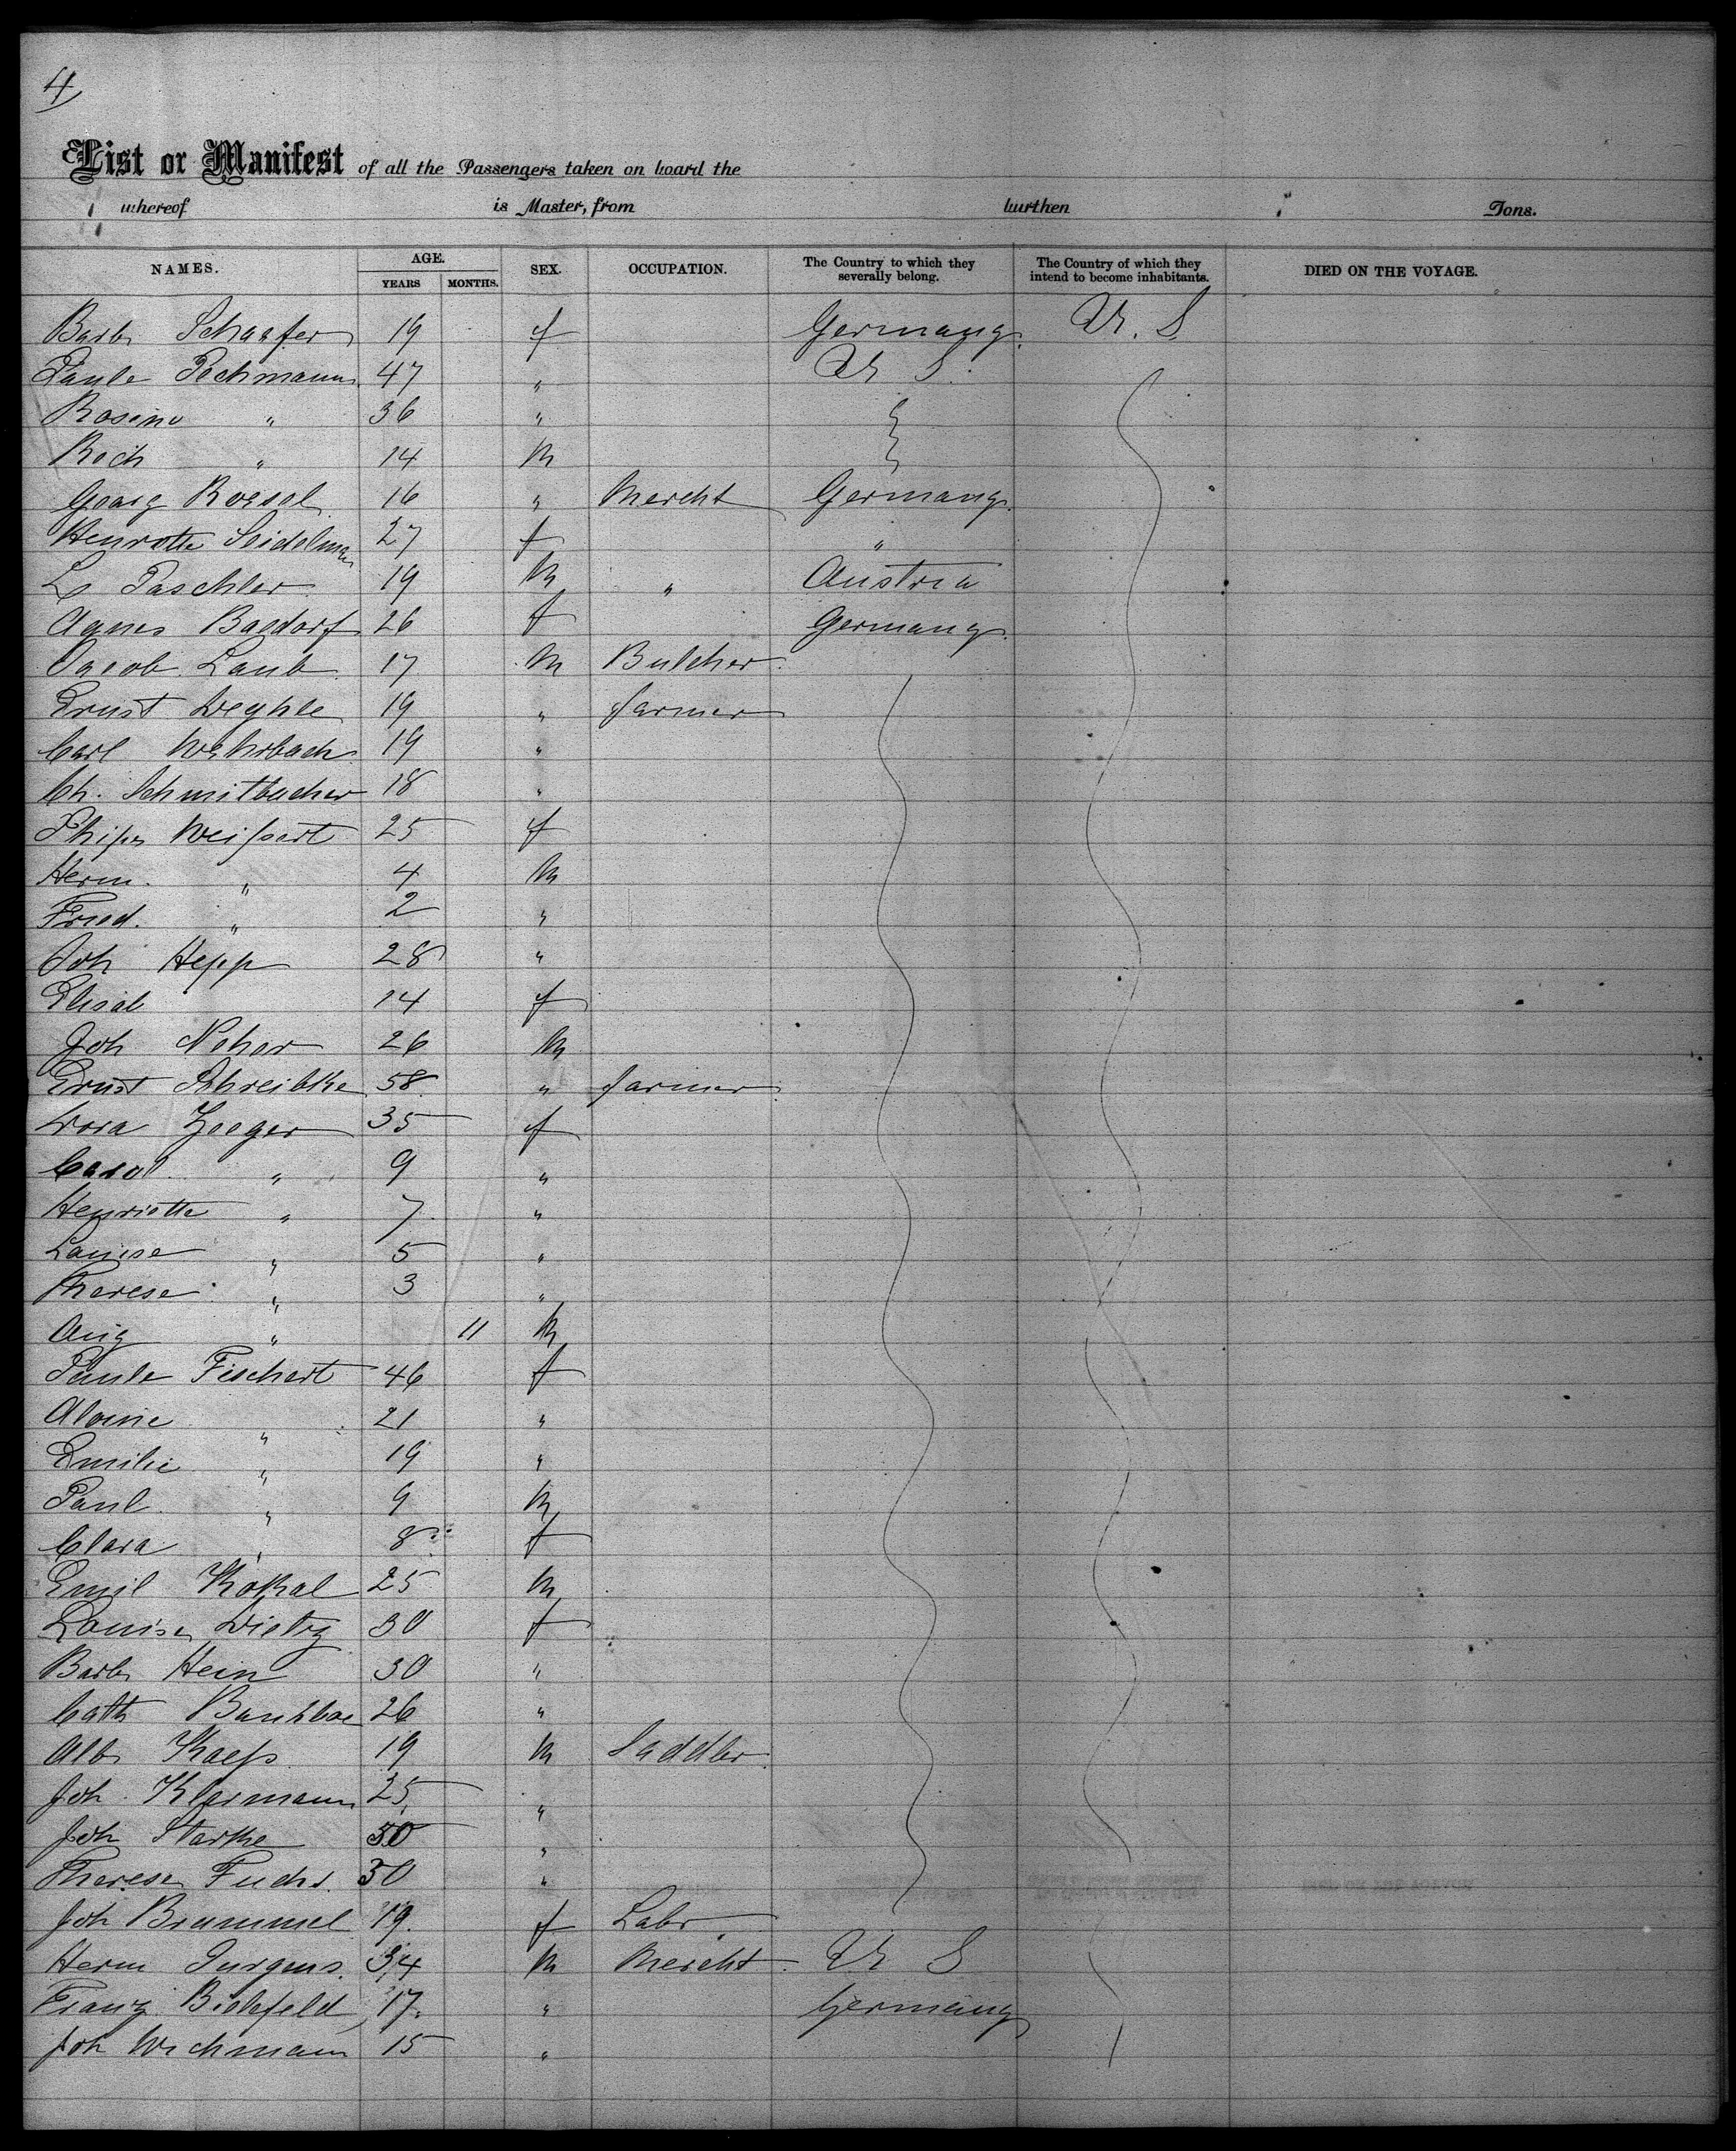 4
List or Manifest of all the Passengers taken on board the
whereof is Master, from burthen Tons.
NAMES. AGE. YEARS MONTHS. SEX. OCCUPATION. The Country to which they severally belong. The Country of which they intend to become inhabitants. DIED ON THE VOYAGE.
Barb Schaafer 19 f Germany. U. S
Paule Pechmann 47 " U S.
Rosine " 36 "
Roch " 14 m
Georg Roesel 16 " Mercht Germany
Henrotte Seidelman 27 f "
L Paschler 19 m " Austria
Agnes Basdorf 26 f Germany.
Jacob Laub 17 m Butcher
Ernst Deyhle 19 " farmer
Carl Wehrbach 19 "
Ch. Schmitbucher 18 "
Weissert 25 f
Herm. " 4 m
Fried. " 2 "
Joh Hepp 28 "
Elisab 14 f
Joh Neher 26 m
Ernst Schreibke 58 " farmer
Dora Zeeger 35 f
Carol " 9 "
Henriette " 7 "
Louise " 5 "
Therese " 3 "
Aug " 11 m
Paule Fischert 46 f
Alvine " 21 "
Emilie " 19 "
Paul " 9 m
Clara " 8 f
Emil Kokal 25 m
Louise Dietz 30 f
Barb Hein 30 "
Cath 26 "
Alb Kaess 19 m Saddler
Joh Klarmann 25 "
Joh Starke 50 "
Therese Fuchs. 30 "
Joh Brummel 19. f Labr
Herm Jurgens. 34 m Mercht U S
Franz Bielefeld 17. " Germany
Joh Wichmann 15 "